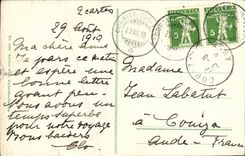 2 cartes
29 Août
1912
Ma chère âme
Je pars ce matin
et espère une
bonne lettre
avant peu -
Nous avons un
temps superbe
pour notre voyage
bons baisers
Clo
HELVETIA
HELVETIA
5
5
Madame
Jean Labatut
à Couiza
Aude - France